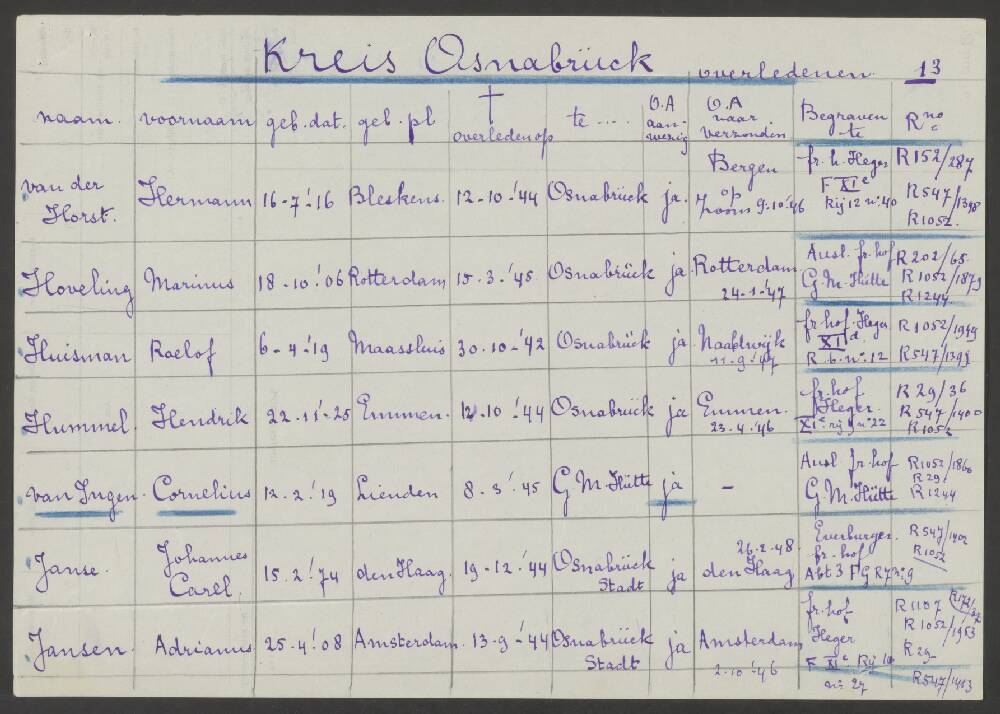 Kreis Osnabrück overledenen. 13
naam. voornaam geb. dat. geb. pl. † overleden op te .... O.A aan-wezig O.A naar verzonden Begraven te R no
van der Horst. Hermann 16-7-'16 Bleskens. 12-10-'44 Osnabrück ja. Bergen op zoom 9-10-'46 fr. h. Heger F XI c Rij 12 n: 40 R152/287 R547/1398 R1052.
Hoveling Marinus 18-10-'06 Rotterdam 15-3-'45 Osnabrück ja Rotterdam 24-1-'47 Ausl. fr. hof G. M. Hütte R202/65. R1052/1879 R1244
Huisman Roelof 6-4-'19 Maassluis 30-10-'42 Osnabrück ja Naaldwijk 11-9-'47 fr. hof. Heger XI d. R 6. n: 12 R1052/1949 R547/1399
Hummel. Hendrik 22-11-25 Emmen. 12-10-'44 Osnabrück ja Emmen. 23-4-'46 fr. hof Heger. XI c rij 9 n: 22 R29/36 R547/1400 R1052
van Ingen. Cornelius 12-2-'19 Lienden 8-3-'45 G M Hütte ja - Ausl fr. hof G. M. Hütte R1052/1860 R29. R1244
Janse. Johannes Carel. 15-2-'74 den Haag. 19-12-'44 Osnabrück Stadt ja 26-2-48. den Haag Everburger. fr. hof Abt 3 F G R7 n: 9 R547/1402 R1052
Jansen. Adrianus 25-4-'08 Amsterdam. 13-9-'44 Osnabrück Stadt ja Amsterdam 2-10-'46 fr. hof Heger F XI c Rij 10 n: 27 R1107 R1052/1953 R29- R547/1403